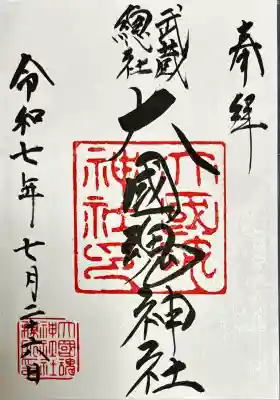 奉拝
武蔵
總社
大國魂神社
大国魂
神社印
令和七年七月二十六日
大國魂
神社